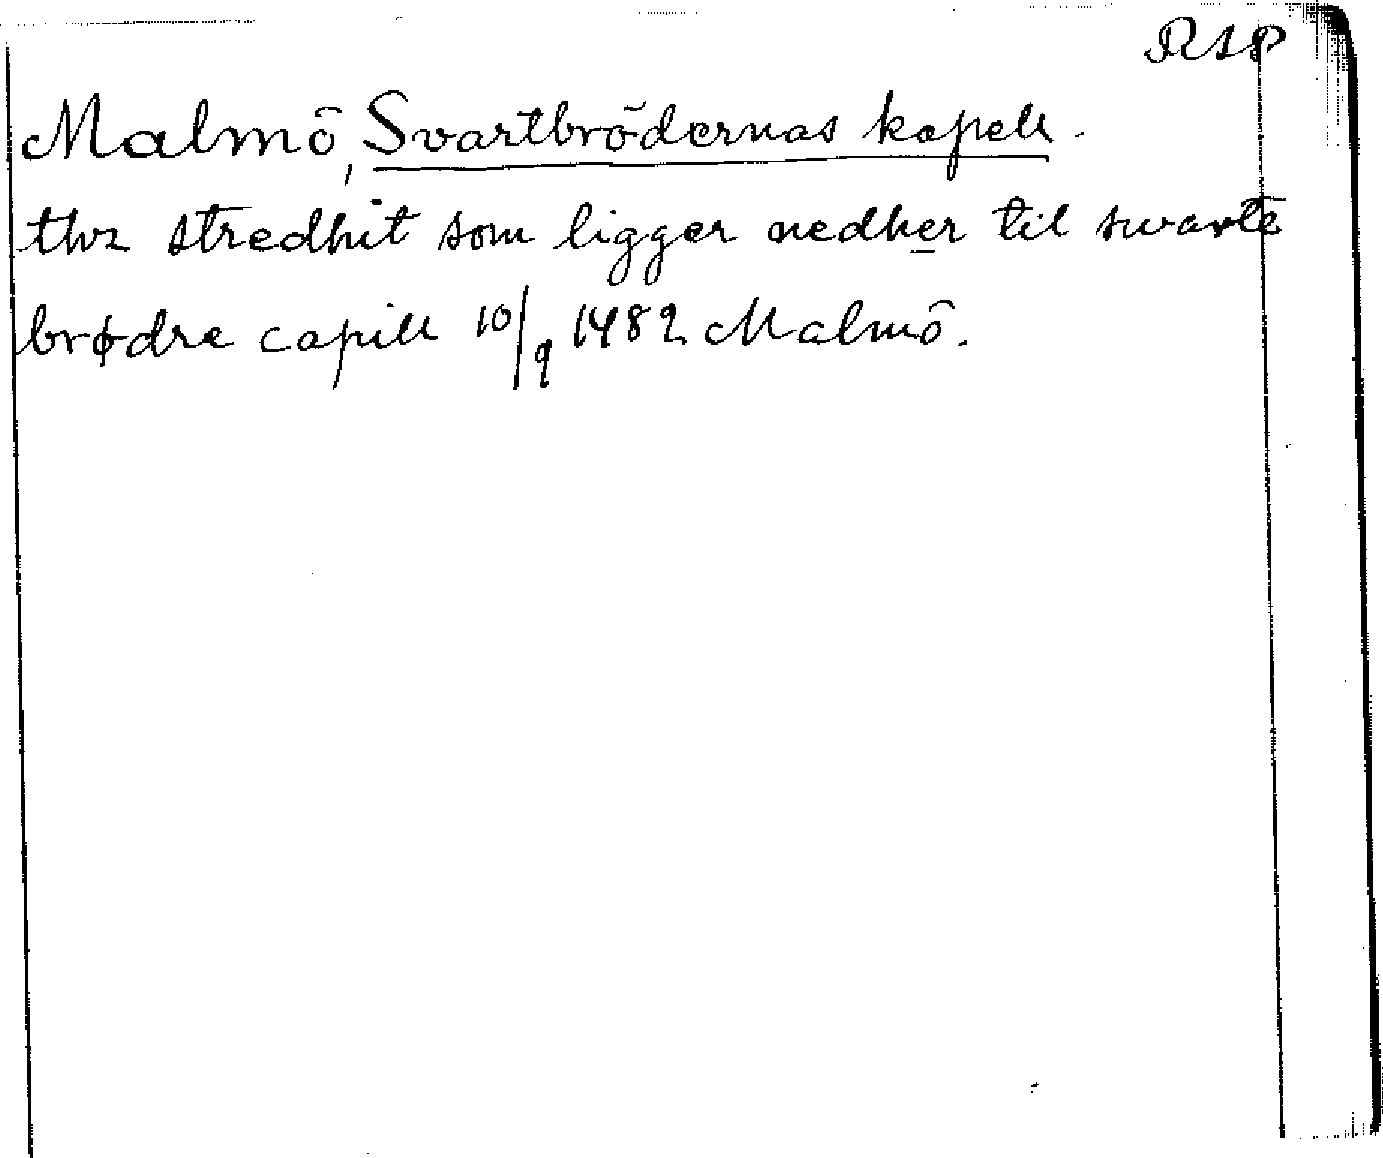 R18
Malmö, Svartbrödernas kapell.
thz stredhit som ligger nedher til swarte
brødre capill 10/9 1482 Malmö.